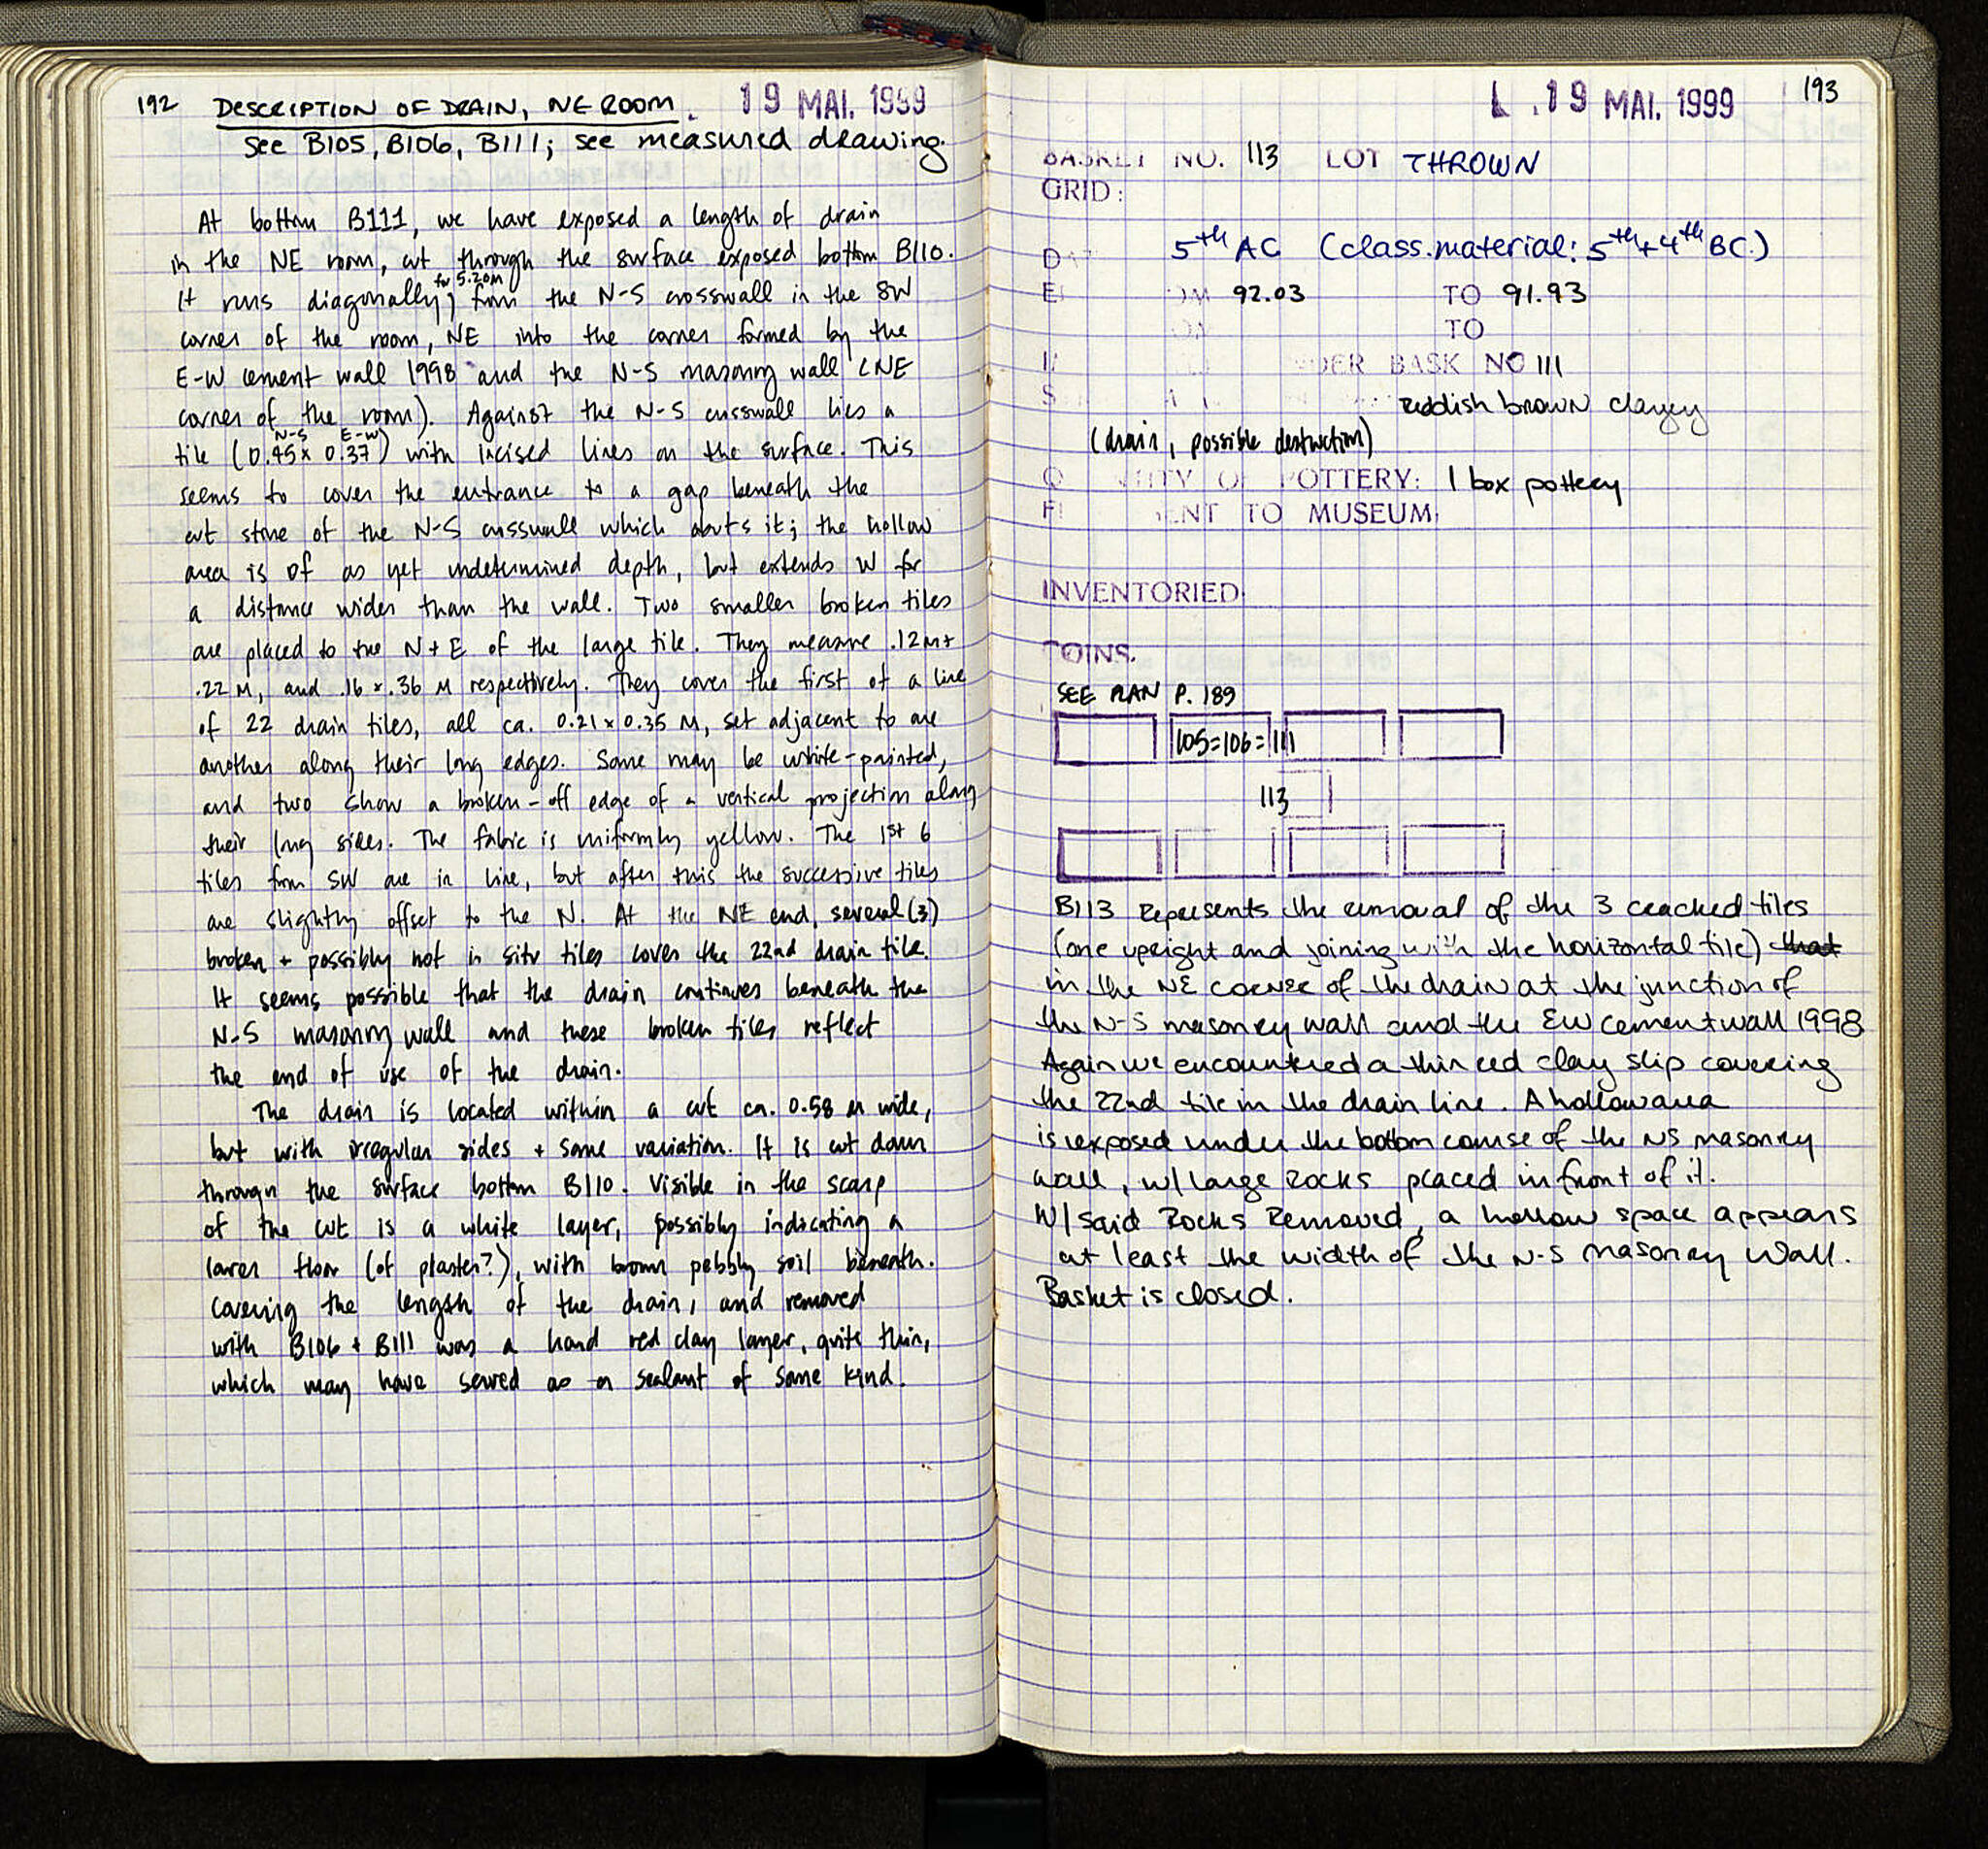 192 DESCRIPTION OF DRAIN, NE ROOM. 19 MAI. 1999
see B105, B106, B111; see measured drawing.
At bottom B111, we have exposed a length of drain
in the NE room, cut through the surface exposed bottom B110.
for 5.20m
It runs diagonally, from the N-S crosswall in the SW
corner of the room, NE into the corner formed by the
E-W cement wall 1998 and the N-S masonry wall (NE
corner of the room). Against the N-S crosswall lies a
N-S E-W
tile (0.45 x 0.37) with incised lines on the surface. This
seems to cover the entrance to a gap beneath the
cut stone of the N-S crosswall which abuts it; the hollow
area is of as yet undetermined depth, but extends W for
a distance wider than the wall. Two smaller broken tiles
are placed to the N + E of the large tile. They measure .12M x
.22 M, and .16 x .36 M respectively. They cover the first of a line
of 22 drain tiles, all ca. 0.21 x 0.35 M, set adjacent to one
another along their long edges. Some may be white-painted,
and two show a broken-off edge of a vertical projection along
their long sides. The fabric is uniformly yellow. The 1st 6
tiles from SW are in line, but after this the successive tiles
are slightly offset to the N. At the NE end, several (3)
broken + possibly not in situ tiles cover the 22nd drain tile.
It seems possible that the drain continues beneath the
N-S masonry wall and these broken tiles reflect
the end of use of the drain.
The drain is located within a cut ca. 0.58 m wide,
but with irregular sides + some variation. It is cut down
through the surface bottom B110. Visible in the scarp
of the cut is a white layer, possibly indicating a
lower floor (of plaster?), with brown pebbly soil beneath.
Covering the length of the drain, and removed
with B106 + B111 was a hard red clay layer, quite thin,
which may have served as a sealant of some kind.
19 MAI. 1999 193
BASKET NO. 113 LOT THROWN
GRID:
5th AC (class. material: 5th + 4th BC.)
92.03 TO 91.93
TO
BASK NO 111
reddish brown clayey
(drain, possible destruction)
POTTERY: 1 box pottery
TO MUSEUM:
INVENTORIED:
COINS.
SEE PLAN P. 189
105=106=111
113
B113 represents the removal of the 3 cracked tiles
(one upright and joining with the horizontal tile) that
in the NE corner of the drain at the junction of
the N-S masonry wall and the EW cement wall 1998
Again we encountred a thin red clay slip covering
the 22nd tile in the drain line. A hollow area
is exposed under the bottom course of the NS masonry
wall, w/ large rocks placed in front of it.
W/ said rocks removed, a hollow space appears
at least the width of the N-S masonry wall.
Basket is closed.